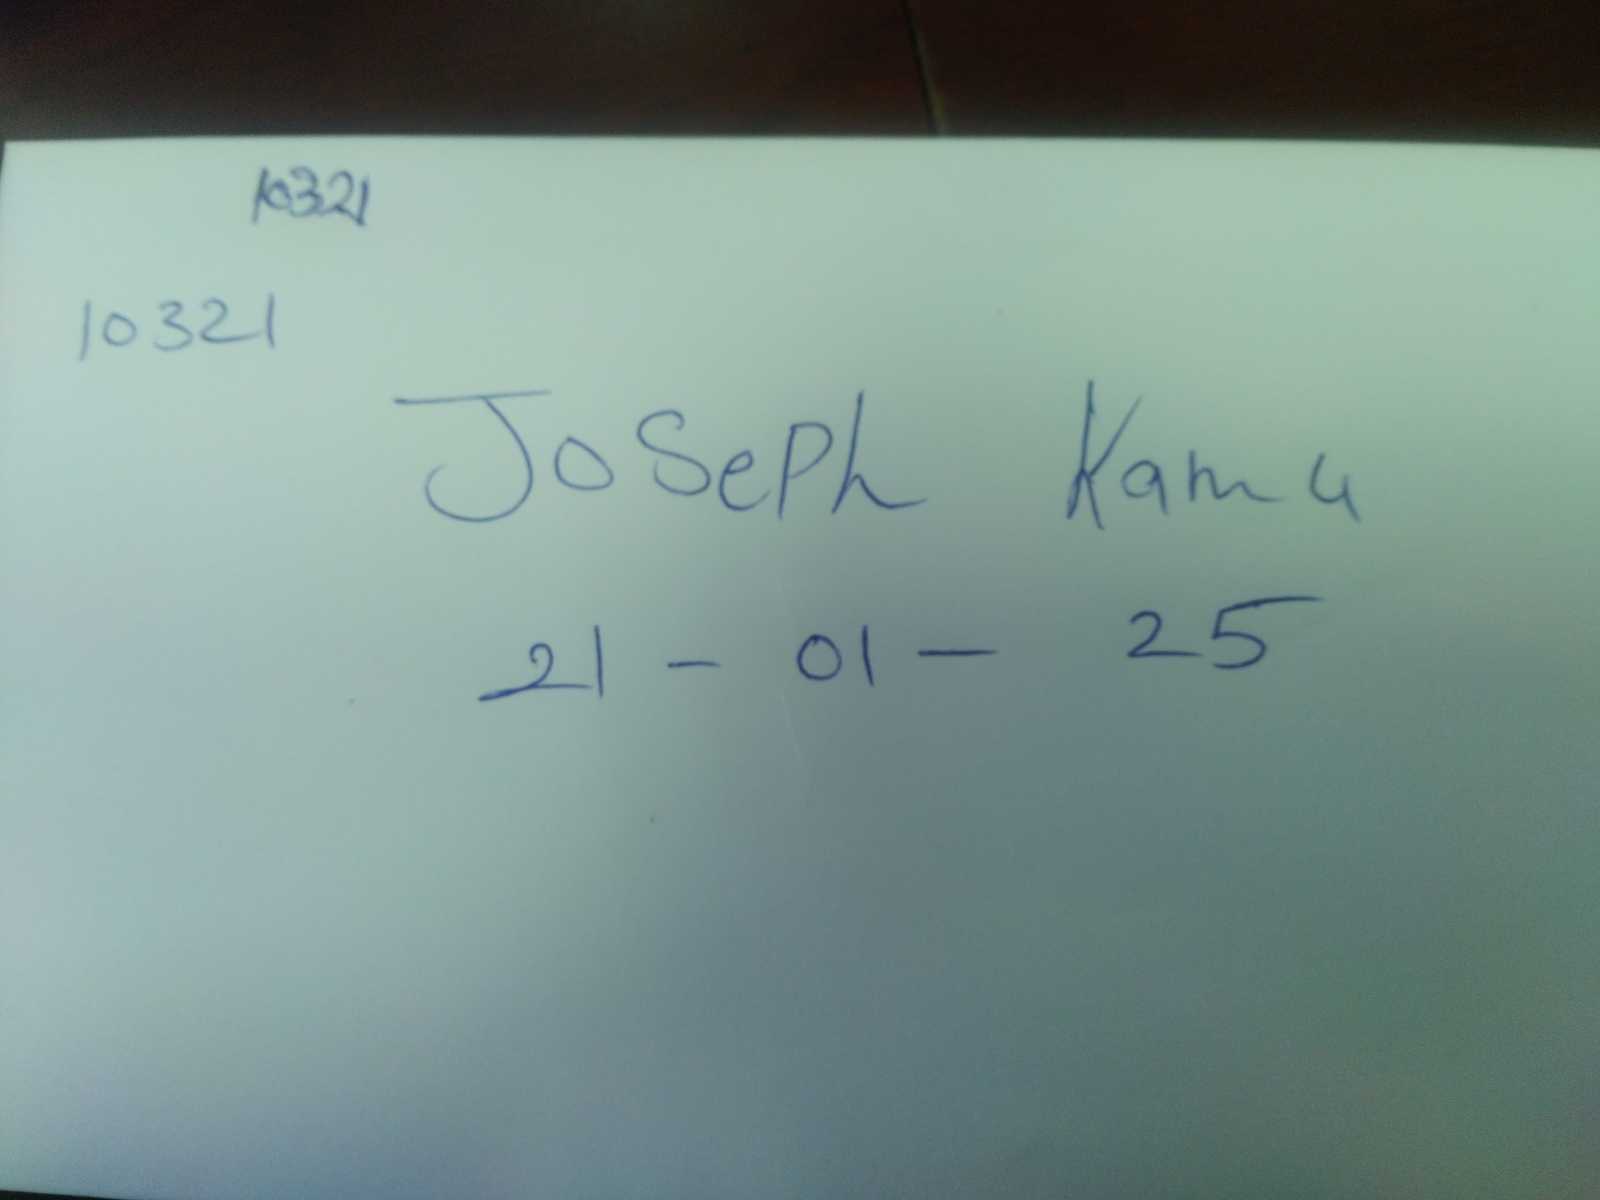 10321
10321
Joseph Kamu
21 - 01 - 25